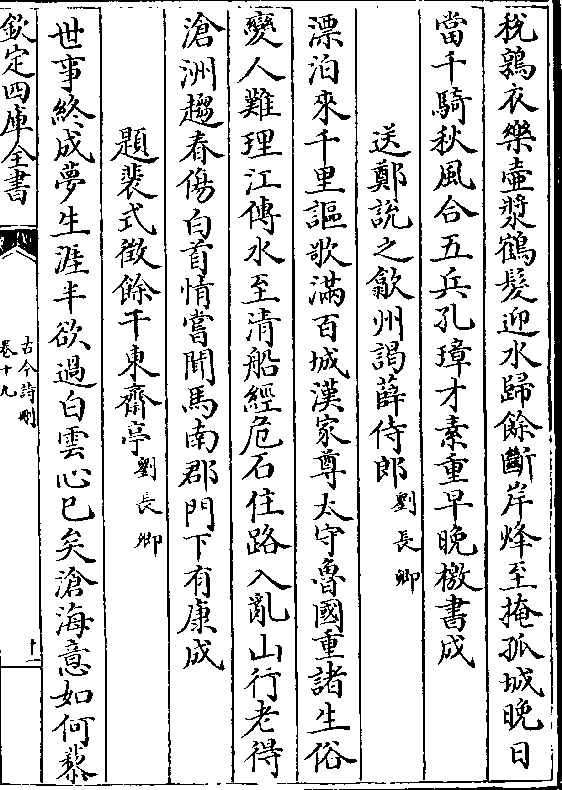 梲鶉衣樂壺漿鶴髮迎水歸餘斷岸烽至掩孤城晚日
當千騎秋風合五兵孔璋才素重早晚檄書成
送鄭説之歙州謁薛侍郎劉長卿
漂泊來千里謳歌滿百城漢家尊太守魯國重諸生俗
變人難理江傳水至清船經危石住路入亂山行老得
滄洲趨春傷白首情嘗聞馬南郡門下有康成
題裴式徵餘干東齋亭劉長卿
世事終成夢生涯半欲過白雲心已矣滄海意如何藜
欽定四庫全書
古今詩刪
卷十九
十二